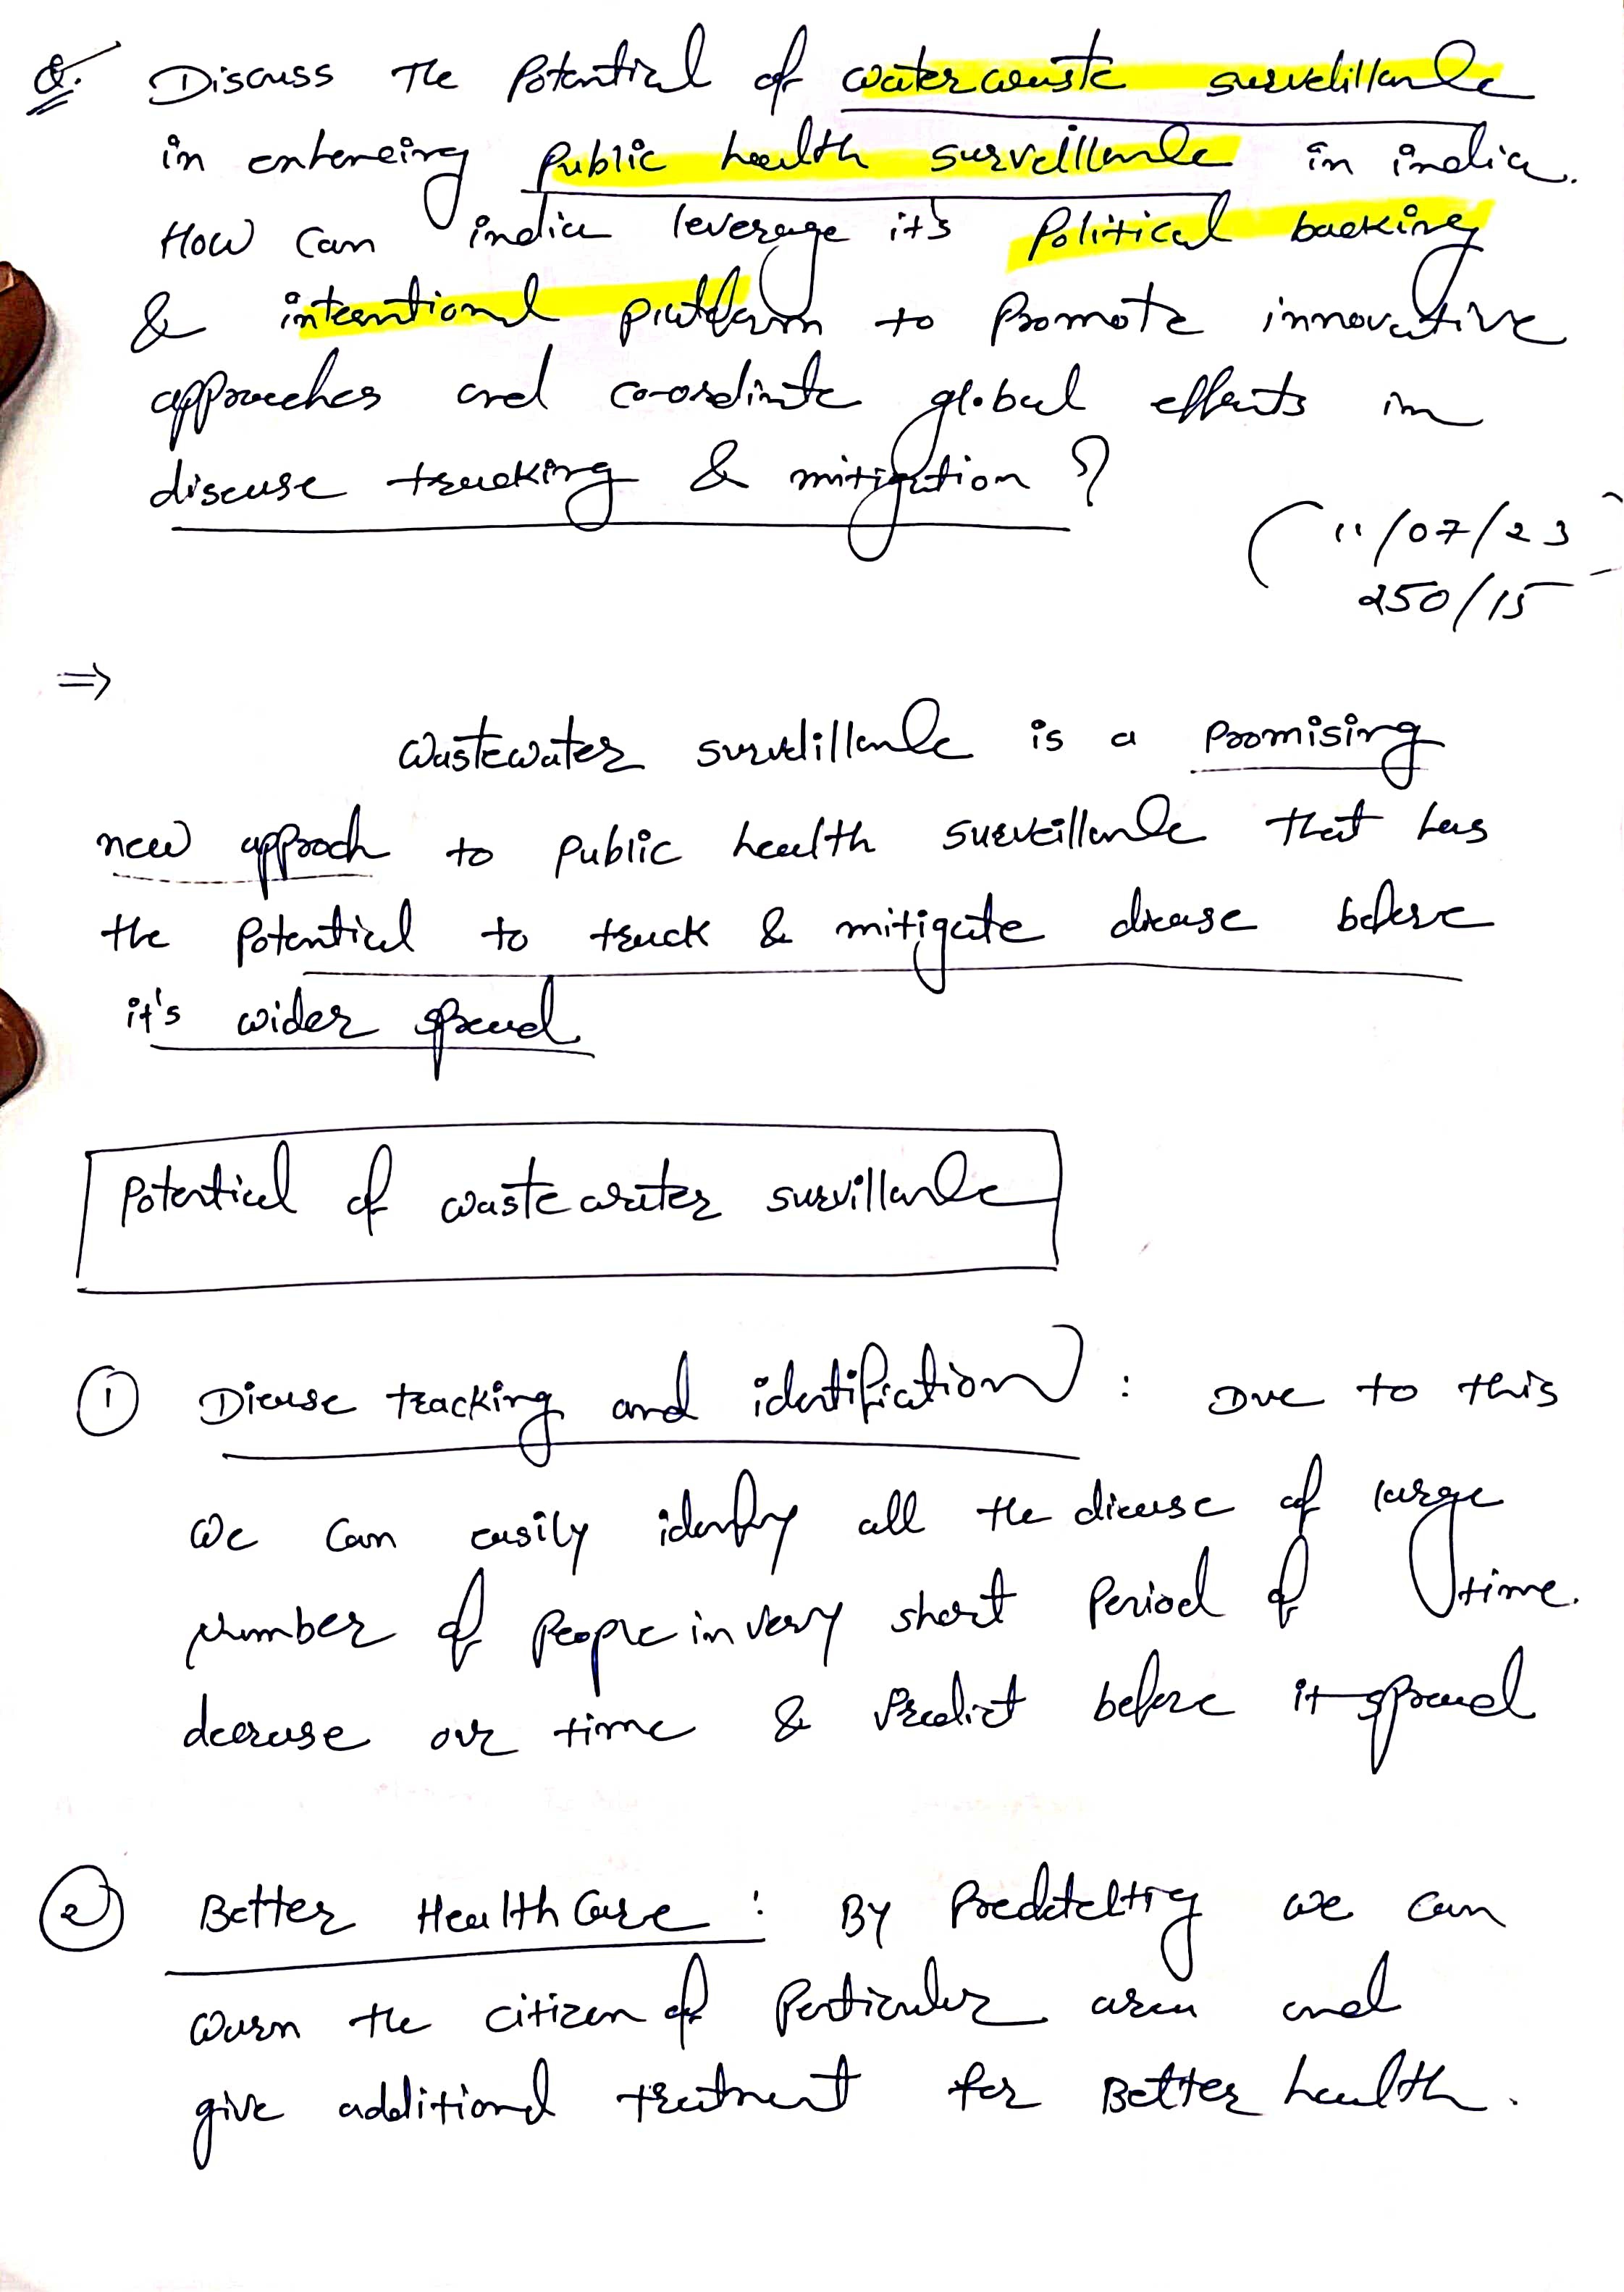 Q. Discuss The Potential of waterwaste surveillance
in enhancing public health surveillance in india.
How can india leverage it's Political backing
& international platform to promote innovative
approaches and co-ordinate global efforts in
disease tracking & mitigation ?
(11/07/23
250/15
⇒
Wastewater surveillance is a promising
new approch to public health surveillance that has
the potential to track & mitigate diease before
it's wider spread
Potential of wastewater survillance
① Diease tracking and identification : Due to this
we can easily identify all the diease of large
number of people in very short Period of time.
decrease our time & Predict before it spread
② Better Health Care : By we can
warn the citizen of Perticular area and
give additional treatment for Better health.